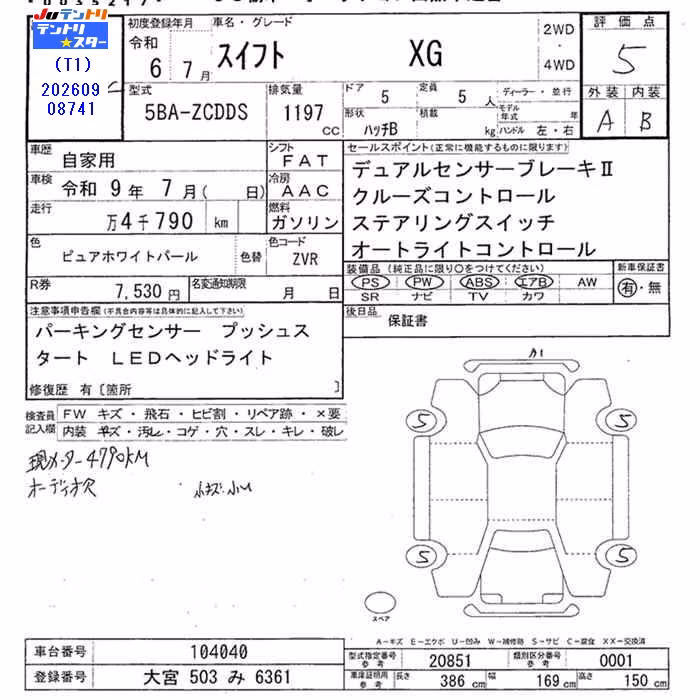 JUテントリ
テントリ★スター
(T1)
202609
08741
初度登録年月 車名・グレード
令和 6年 7月 スイフト XG 2WD・4WD
評価点 5
外装 A 内装 B
型式 5BA-ZCDDS
排気量 1197 CC
ドア 5
形状 ハッチB
定員 5人
積載 kg
ディーラー・並行
モデル年式 年
ハンドル 左・右
車歴 自家用
シフト FAT
車検 令和 9年 7月( 日)
冷房 AAC
走行 万4千790 km
燃料 ガソリン
色 ピュアホワイトパール 色替
色コード ZVR
R券 7,530円
名変通知期限 月 日
セールスポイント(正常に機能するものに限ります)
デュアルセンサーブレーキⅡ
クルーズコントロール
ステアリングスイッチ
オートライトコントロール
装備品(純正品に限り○をつけてください)
PS PW ABS エアB AW
SR ナビ TV カワ
新車保証書
有・無
後日品 保証書
注意事項申告欄(不具合内容等は具体的に記入して下さい)
パーキングセンサー プッシュス
タート LEDヘッドライト
修復歴 有〔箇所 〕
検査員記入欄
FW キズ・飛石・ヒビ割・リペア跡・×要
内装 キズ・汚レ・コゲ・穴・スレ・キレ・破レ
現メーター4790KM
オーディオ欠 小キズ・小U
カ1
5 5
5 5
スペア
A-キズ E-エクボ U-凹み W-補修跡 S-サビ C-腐食 XX-交換済
車台番号 104040
登録番号 大宮 503 み 6361
型式指定番号 参考 20851
類別区分番号 参考 0001
車庫証明用 参考 長さ 386 cm 幅 169 cm 高さ 150 cm